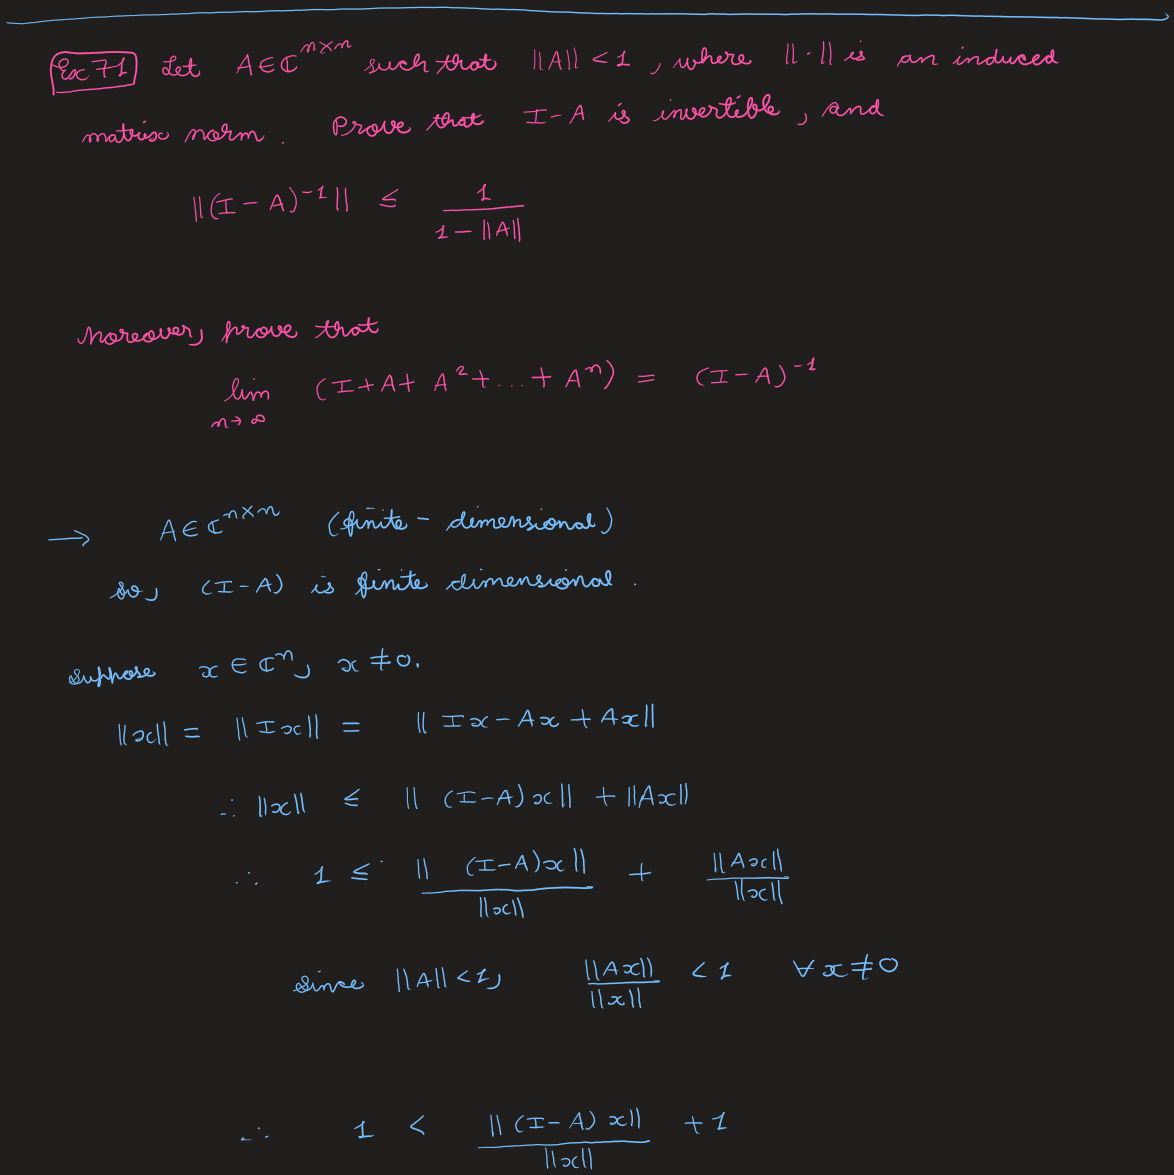 Ex 71 Let A ∈ ℂ^{n×n} such that ||A|| < 1, where ||·|| is an induced
matrix norm. Prove that I - A is invertible, and
||(I - A)^{-1}|| ≤ 1 / (1 - ||A||)
Moreover, prove that
lim_{n→∞} (I + A + A^2 + ... + A^n) = (I - A)^{-1}
→ A ∈ ℂ^{n×n} (finite - dimensional)
So, (I - A) is finite dimensional.
Suppose x ∈ ℂ^n, x ≠ 0.
||x|| = ||Ix|| = ||Ix - Ax + Ax||
∴ ||x|| ≤ ||(I - A)x|| + ||Ax||
∴ 1 ≤ ||(I - A)x|| / ||x|| + ||Ax|| / ||x||
Since ||A|| < 1, ||Ax|| / ||x|| < 1 ∀ x ≠ 0
∴ 1 < ||(I - A)x|| / ||x|| + 1